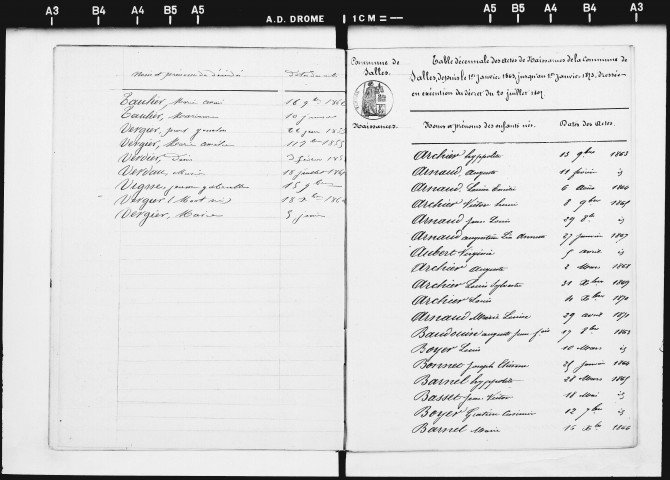 A3 B4 A4 B5 A5
A.D. DROME
1 CM =
A5 B5 A4 B4 A3
Noms et prénoms des décédés
Taulier, Marie
Taulier, Marianne 10 janvier
Vergier,
Vergier, Marie 11 9bre 1855
Vervier, 3 février
Vervau, Marie 18 juillet
Vigne, 15 9bre
Vergier (Mort né) 18 Xbre
Vergier, Marie 5 juin
Commune de
Salles.
Naissances.
Table décennale des Actes de Naissances de la Commune de
Salles, depuis le 1er Janvier 1863, jusqu'au 1er Janvier 1873, dressée
en exécution du décret du 20 juillet 1807.
Noms et prénoms des enfants nés. Dates des Actes.
Archier hyppolite 13 9bre 1863
Arnaud, Auguste 11 février id
Arnaud, Louis 6 Août 1864
Archier Victor 8 9bre 1865
Arnaud Jean Louis 29 8bre id
Arnaud augustin 27 janvier 1867
Aubert Virginie 5 avril id
Archier Auguste 2 Mars 1868
Archier Louis Sylvestre 31 Xbre 1869
Archier Louis 4 Xbre 1870
Arnaud Marie Louise 29 avril 1871
Baudouin auguste jean 17 8bre 1863
Boyer Louis 10 Mars id
Bonnet Joseph Etienne 25 janvier 1864
Barnel hyppolite 28 Mars 1865
Basset jean Victor 18 Mai id
Boyer Casimir 12 7bre id
Barnel Marie 15 Xbre 1866